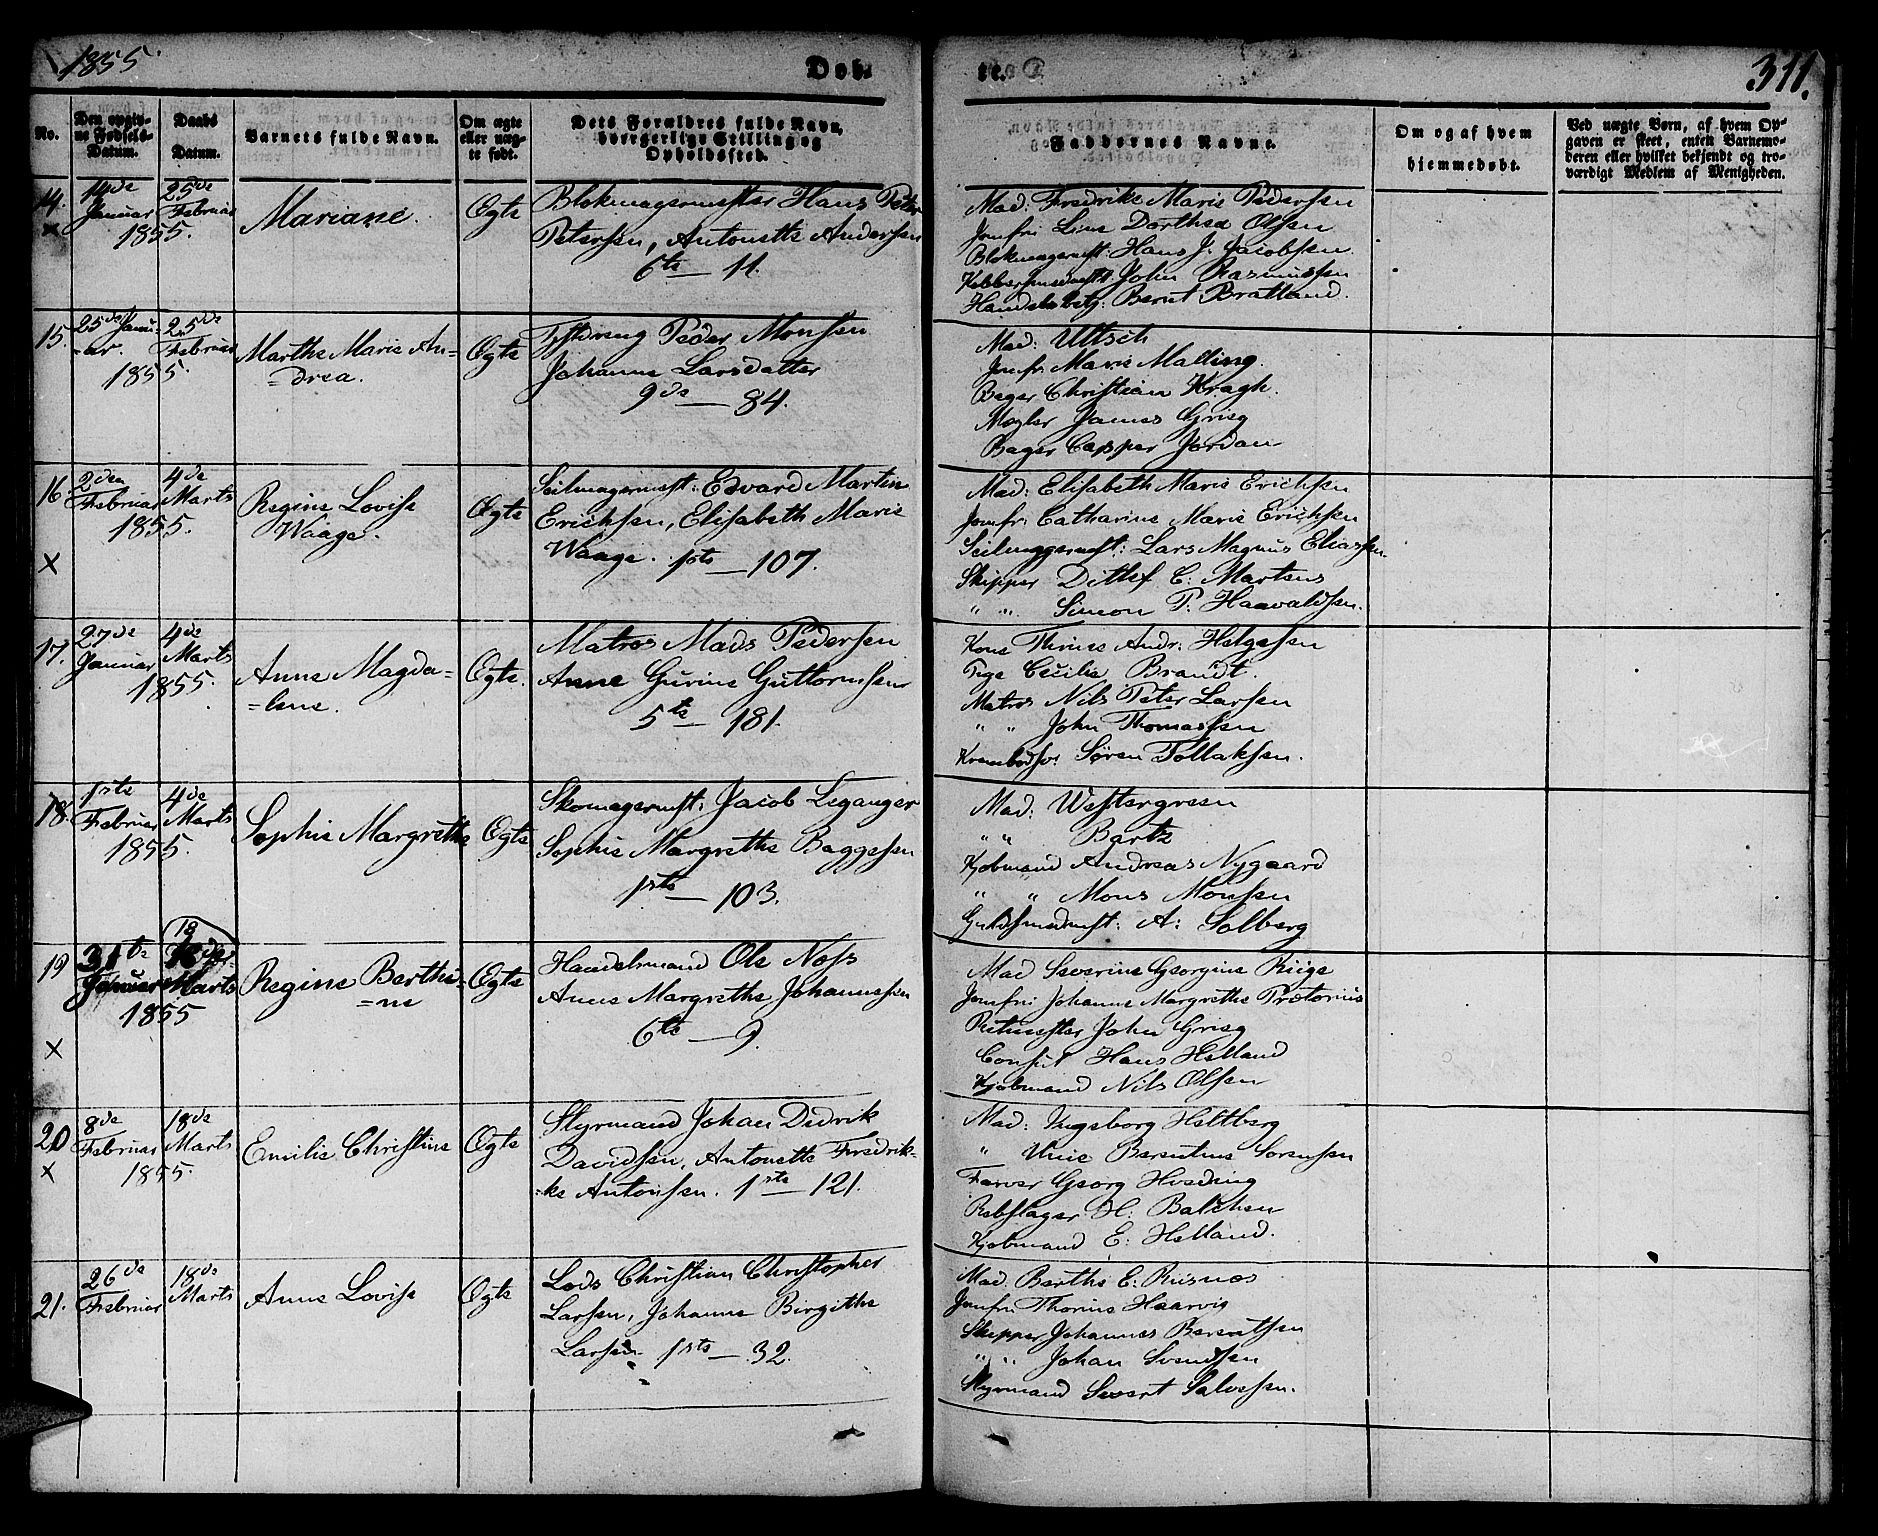 1855.
Døb-
te.
311.
No.
Den opgiv-
ne Fødsels-
Datum.
Daabs
Datum.
Barnets fulde Navn.
Om ægte
eller uæg-
te født.
Dets Forældres fulde Navn,
borgerlige Stilling og
Opholdssted.
Faddernes Navne.
Om og af hvem
hjemmedøbt.
Ved uægte Børn, af hvem Op-
gaven er skeet, enten Barnemo-
deren eller hvilket bekjendt og tro-
værdigt Medlem af Menigheden.
14.
x
14de
Januar
25de
Februar
1855.
Mariane.
Ægte
Blokmagermester Hans Peter
Petersen, Antonette Andersen
6te — 11.
Mad: Fredrike Marie Pedersen
Jomfri Line Dorthea Olsen
Blokmagermst: Hans J. Jacobsen
Kobbersmedmst: John Rasmussen
Handelsbetj: Bernt Bratland.
15.
25de Janu-
ar.
25de
Februar
1855.
Marthe Marie An=
=drea.
Ægte
Peder Monsen
Johanne Larsdatter
9de — 84.
Mad: Ultsch
Jomfr: Marie Malling.
Bager Christian Kragh.
Mægler James Grieg
Bager Casper Jordan
16
x
2den
Februar
4de
Marts
1855.
Regine Lovise
Waage.
Ægte
Seilmagermst: Edvard Martin
Erichsen, Elisabeth Marie
Waage. 1ste — 107.
Mad: Elisabeth Marie Erichsen
Jomfr: Catharine Marie Erichsen
Seilmagermst: Lars Magnus Eliassen
Skipper Ditlef C: Martens
" " Simon P: Haavaldsen.
17.
27de
Januar
4de
Marts
1855.
Anne Magda=
=lene.
Ægte.
Matros Mads Pedersen
Anne Gurine Guttormsen
5te — 181.
Kone Thrine Andr: Helgesen
Pige Cecilie Brandt.
Matros Nils Peter Larsen
" " John Thomassen
Søren Tollaksen.
18.
1ste
Februar
4de
Marts
1855.
Sophie Margrethe
Ægte
Skomagermst: Jacob Leganger
Sophie Margrethe Baggesen
1ste — 103.
Mad: Westergreen
" " Bartz
Kjøbmand Andreas Nygaard
" " Mons Monsen
Guldsmedmst: A: Solberg
19
x
31te
Januar
18
Marts
1855
Regine Berthi=
=ne
Ægte
Handelsmand Ole Næss
Anne Margrethe Johannessen
6te — 9.
Mad Severine Georgine Riige
Jomfri: Johanne Margrethe Prætorius
Ritmester John Grieg
Consul Hans Helland
Kjøbmand Nils Olsen
20
x
8de
Februar
18de
Marts
1855.
Emilie Christine
Ægte
Styrmand Johan Didrik
Davidsen, Antonette Fredrik=
=ke Antonsen. 1ste — 121.
Mad: Ingeborg Heltberg
" Unie Berentine Sørensen
Farver Georg Hveding
Rebslager H: Balchen
Kjøbmand E: Helland.
21.
26de
Februar
18de
Marts
Anne Lovise
Ægte
Lods Christian Christopher
Larsen, Johanne Birgithe
Larsen. 1ste — 32.
Mad: Berthe E: Risnæs
Jomfri Thorine Haarvig
Skipper Johannes Berentsen
" " Johan Svendsen
Styrmand Severt Salvesen.